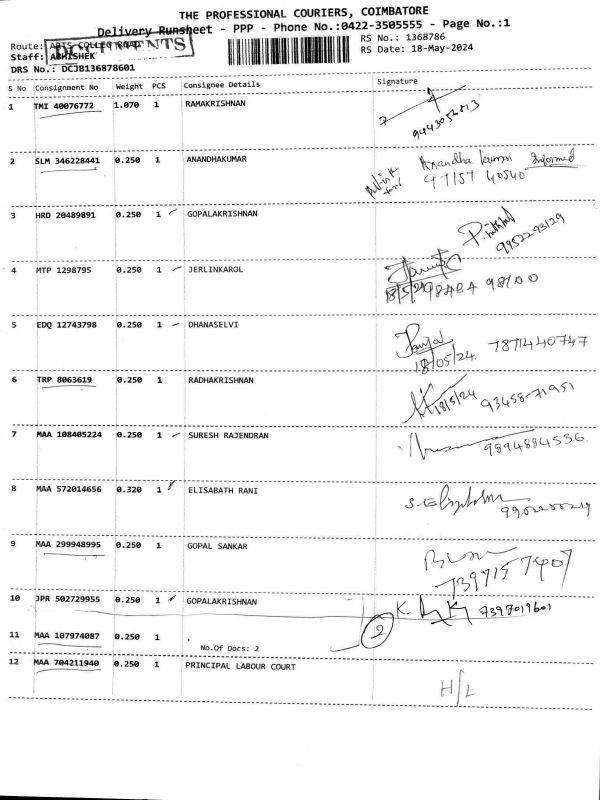 THE PROFESSIONAL COURIERS, COIMBATORE
Delivery Runsheet - PPP - Phone No.:0422-3505555 - Page No.:1
Route: ARTS COLLEG ROAD
DOCUMENTS
RS No.: 1368786
Staff: ABHISHEK
RS Date: 18-May-2024
DRS No.: DCJB136878601
S No Consignment No Weight PCS Consignee Details Signature
1 TMI 40076772 1.070 1 RAMAKRISHNAN
2 SLM 346228441 0.250 1 ANANDHAKUMAR Anandha kumar Informed
97157 40540
3 HRD 20489891 0.250 1 GOPALAKRISHNAN
9952293129
4 MTP 1298795 0.250 1 JERLINKAROL
18/5/24
5 EDQ 12743798 0.250 1 DHANASELVI
18/05/24 7871440747
6 TRP 8063619 0.250 1 RADHAKRISHNAN
18/5/24 93458-71951
7 MAA 108405224 0.250 1 SURESH RAJENDRAN
9894884536
8 MAA 572014656 0.320 1 ELISABATH RANI
9 MAA 299948995 0.250 1 GOPAL SANKAR
7397157407
10 JPR 502729955 0.250 1 GOPALAKRISHNAN K. 7397019601
2
11 MAA 107974087 0.250 1 .
No.Of Docs: 2
12 MAA 704211940 0.250 1 PRINCIPAL LABOUR COURT
H/L